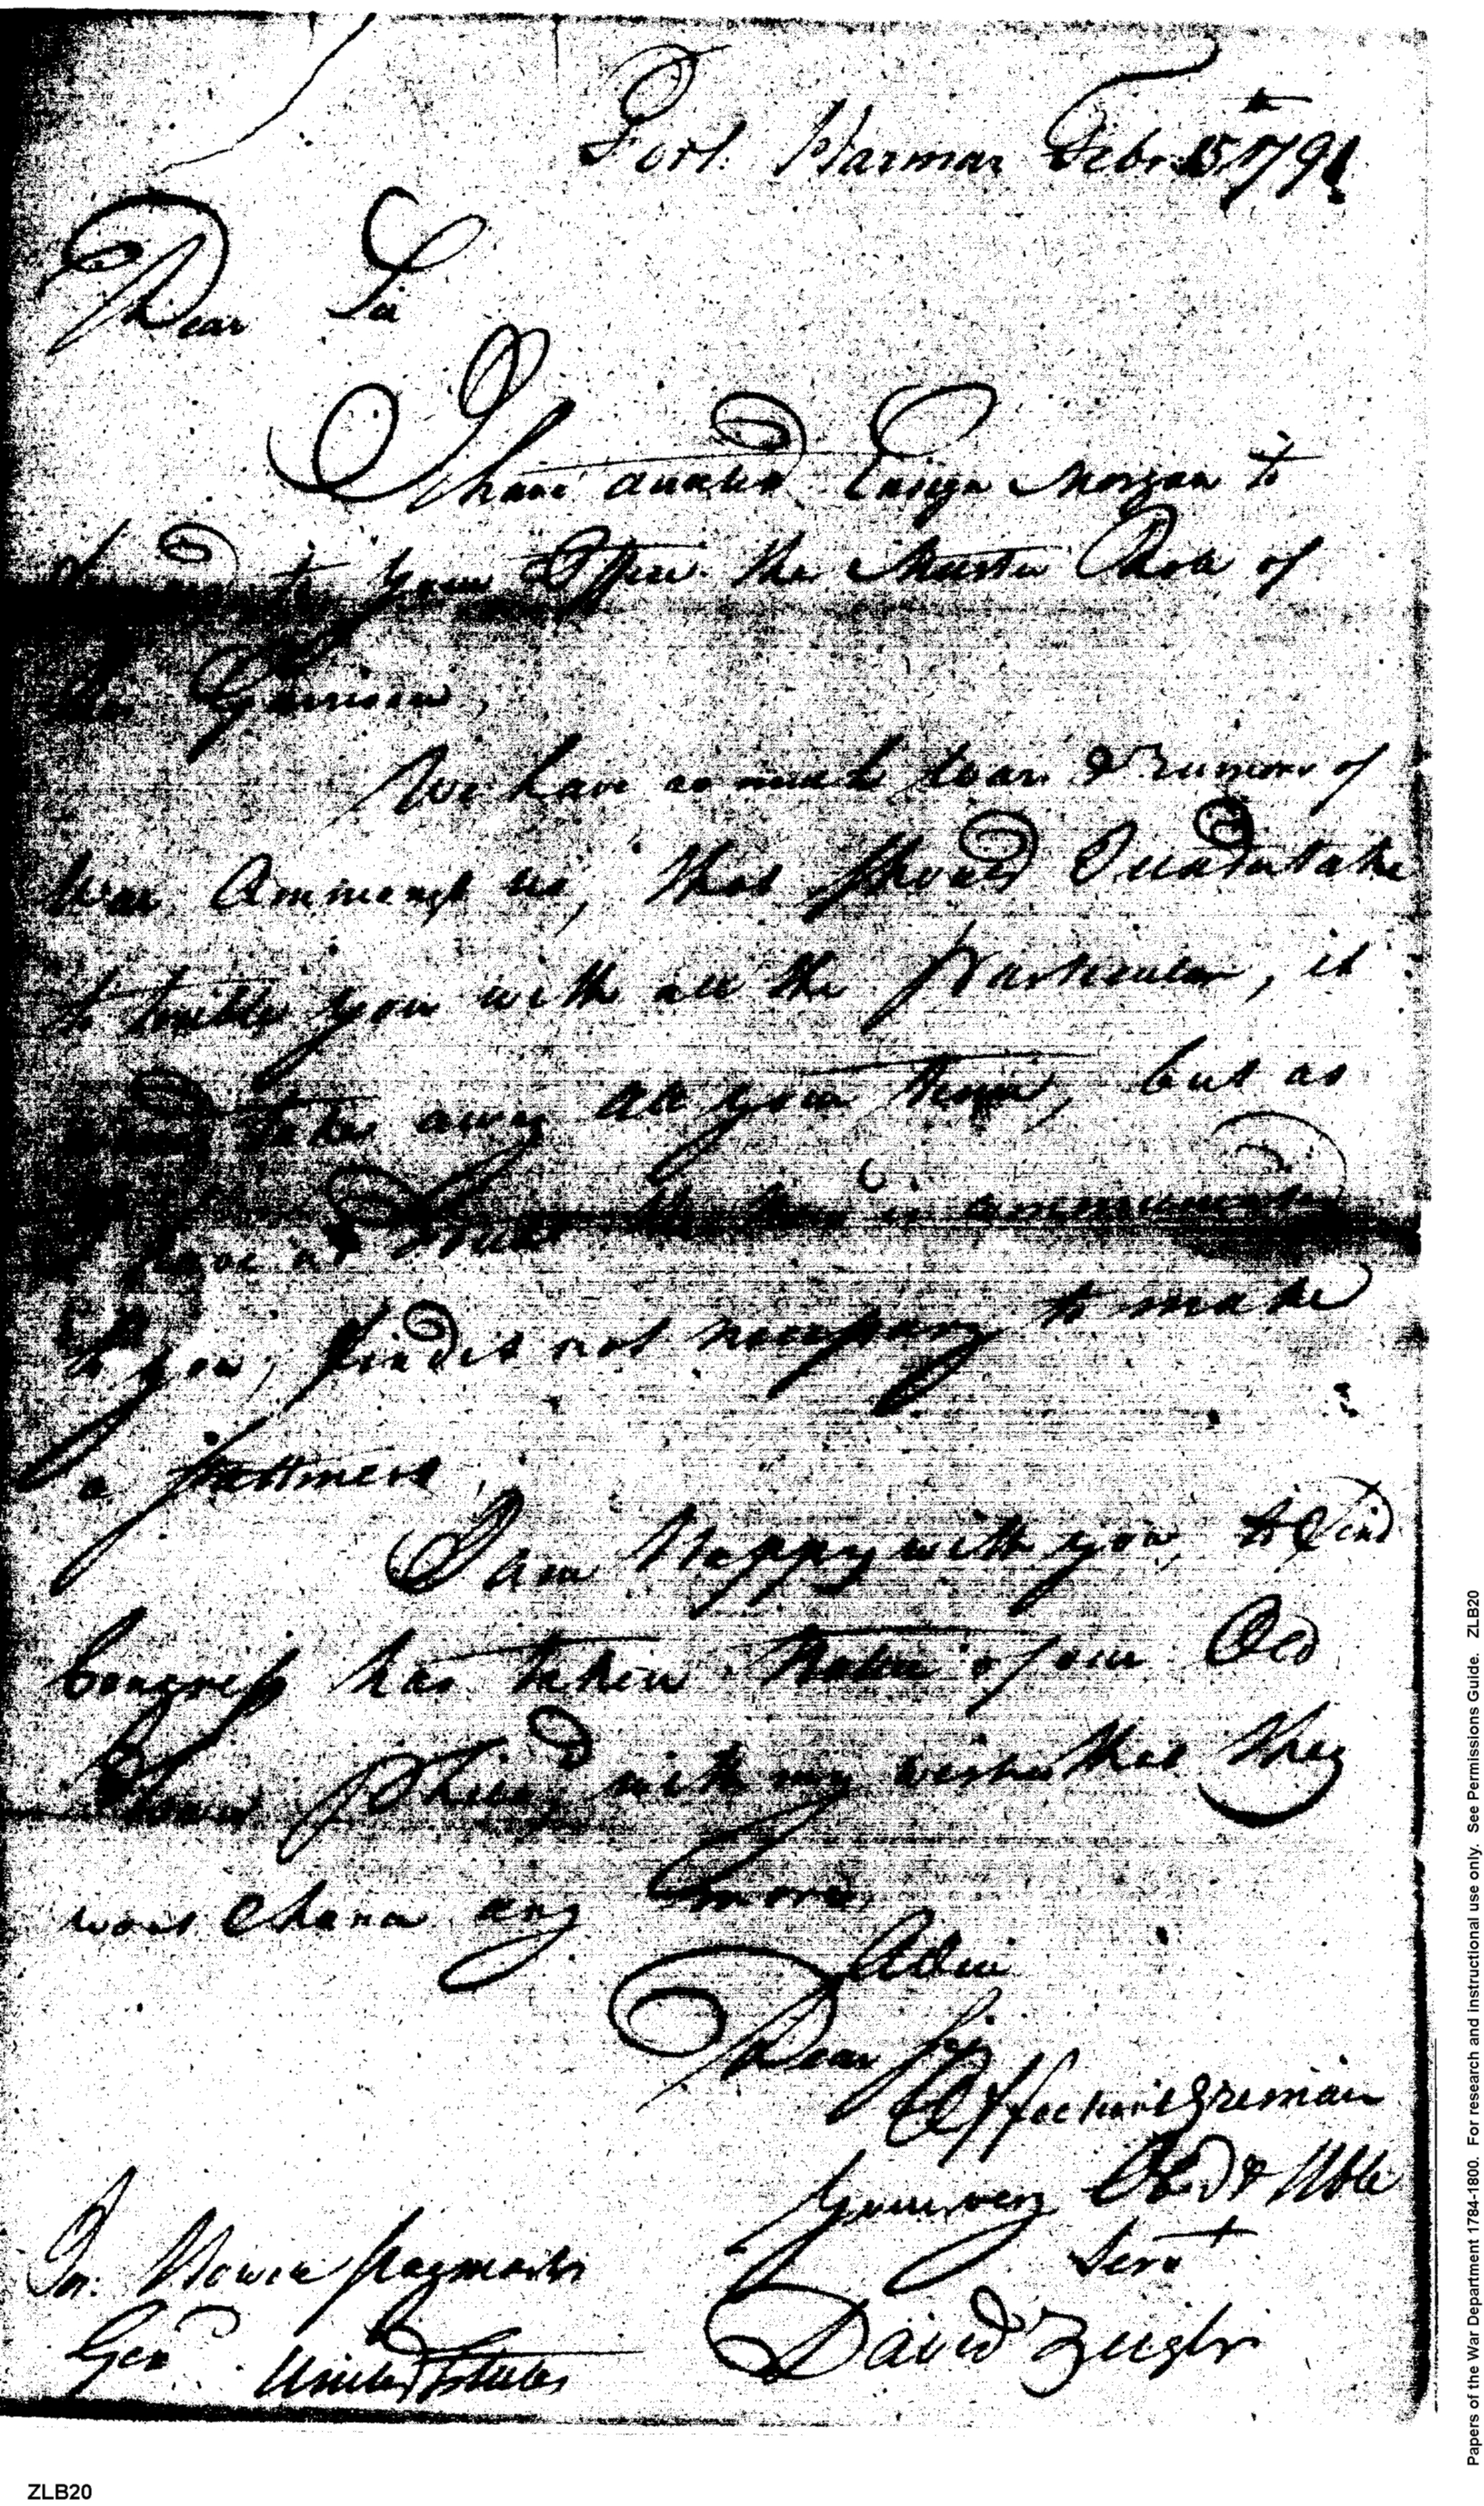 Fort Harmar Febr 15th 1791
Dear Sir
I have Ensign Morgan to
to your Office the Muster Rolls of
the Garrison,
We have so much wars & rumors of
War Ammongst us, that should I undertake
to trouble you with all the Particular, it
would take away all your time, but as
I have no there is
to you, find it not necessary to make
a
I am Happy with you, to find
Congress has taken Notice of our Old
with my wishes that they
was any more,
Adieu
Dear Sir
Your very Obd & Uble
Servt
David Zeigler
Jn: Howin Paymaster
Genl United States
Papers of the War Department 1784-1800. For research and instructional use only. See Permissions Guide. ZLB20
ZLB20